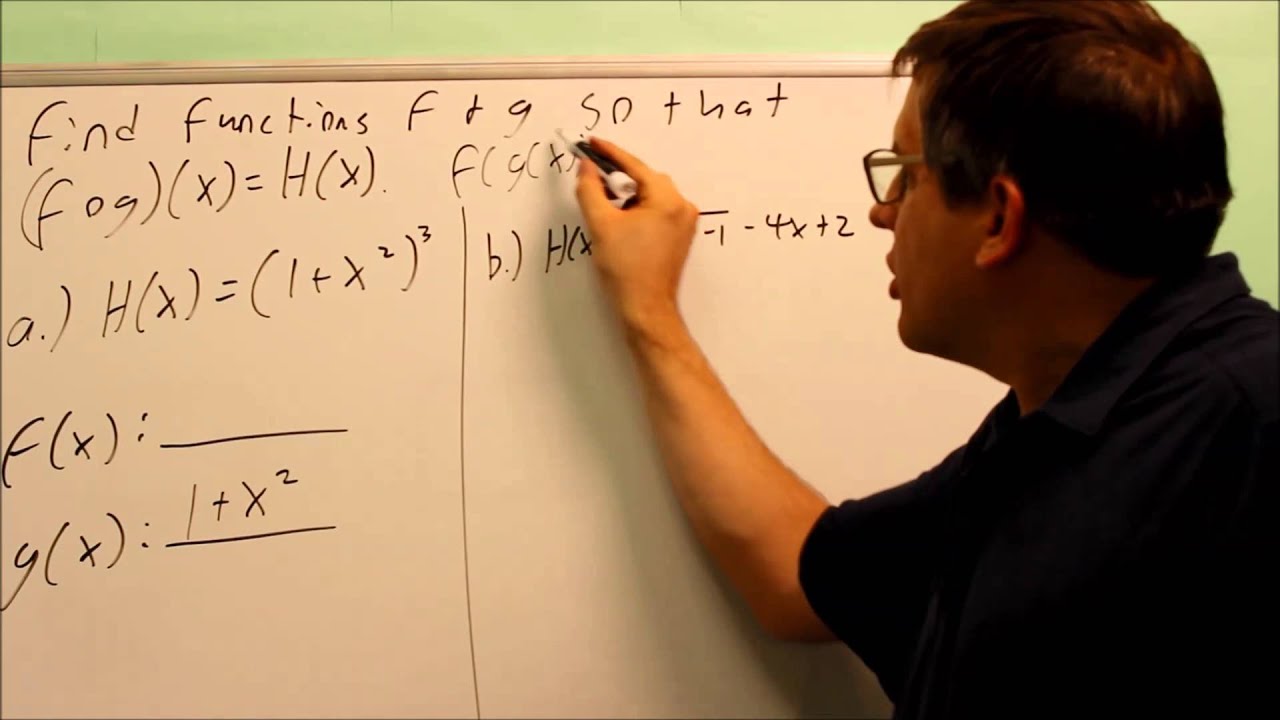 Find functions f + g so that
(f o g)(x) = H(x). f(g(x)
a.) H(x) = (1+x²)³
b.) H(x -1 - 4x+2
f(x):
g(x): 1+x²